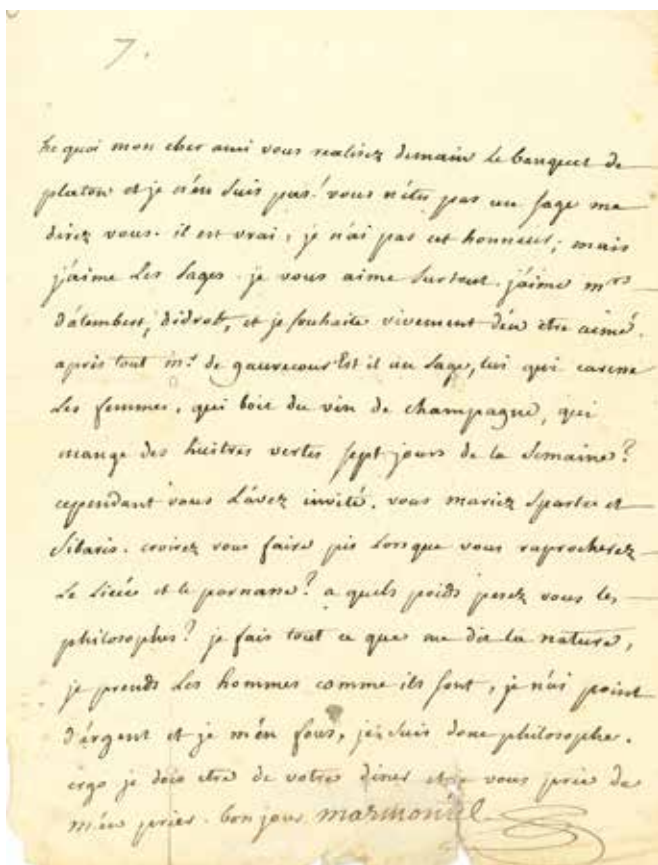 7.
he quoi mon cher ami vous realisez demain le banquet de
platon et je n'en suis pas! vous n'etes pas un sage me
direz vous. il est vrai, je n'ai pas cet honneur; mais
j'aime les sages. je vous aime surtout. j'aime mrs
d'alembert, didrot, et je souhaite vivement d'en etre aimé.
après tout mr. de gauvecour est il un sage, lui qui caresse
les femmes, qui boit du vin de champagne, qui
mange des huitres vertes sept jours de la semaine?
cependant vous l'avez invité. vous mariez sparte et
sibaris. croirez vous faire pis lorsque vous raprocherez
le licée et le parnasse? a quels poids pesez vous les
philosophes? je fais tout ce que me dit la nature,
je prends les hommes comme ils sont, je n'ai point
d'argent et je m'en fous, je suis donc philosophe.
ergo je dois etre de votre diner et je vous prie de
m'en prier. bon jour marmontel